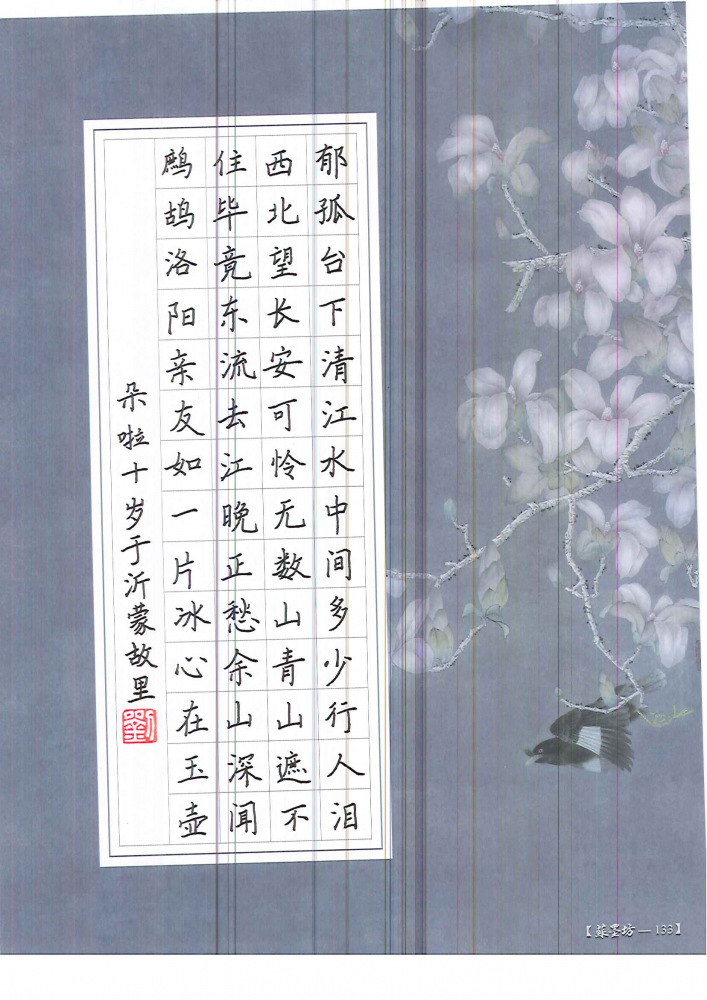 郁孤台下清江水中间多少行人泪
西北望长安可怜无数山青山遮不
住毕竟东流去江晚正愁余山深闻
鹧鸪洛阳亲友如一片冰心在玉壶
朵啦十岁于沂蒙故里
劉
【蘇墨坊—133】